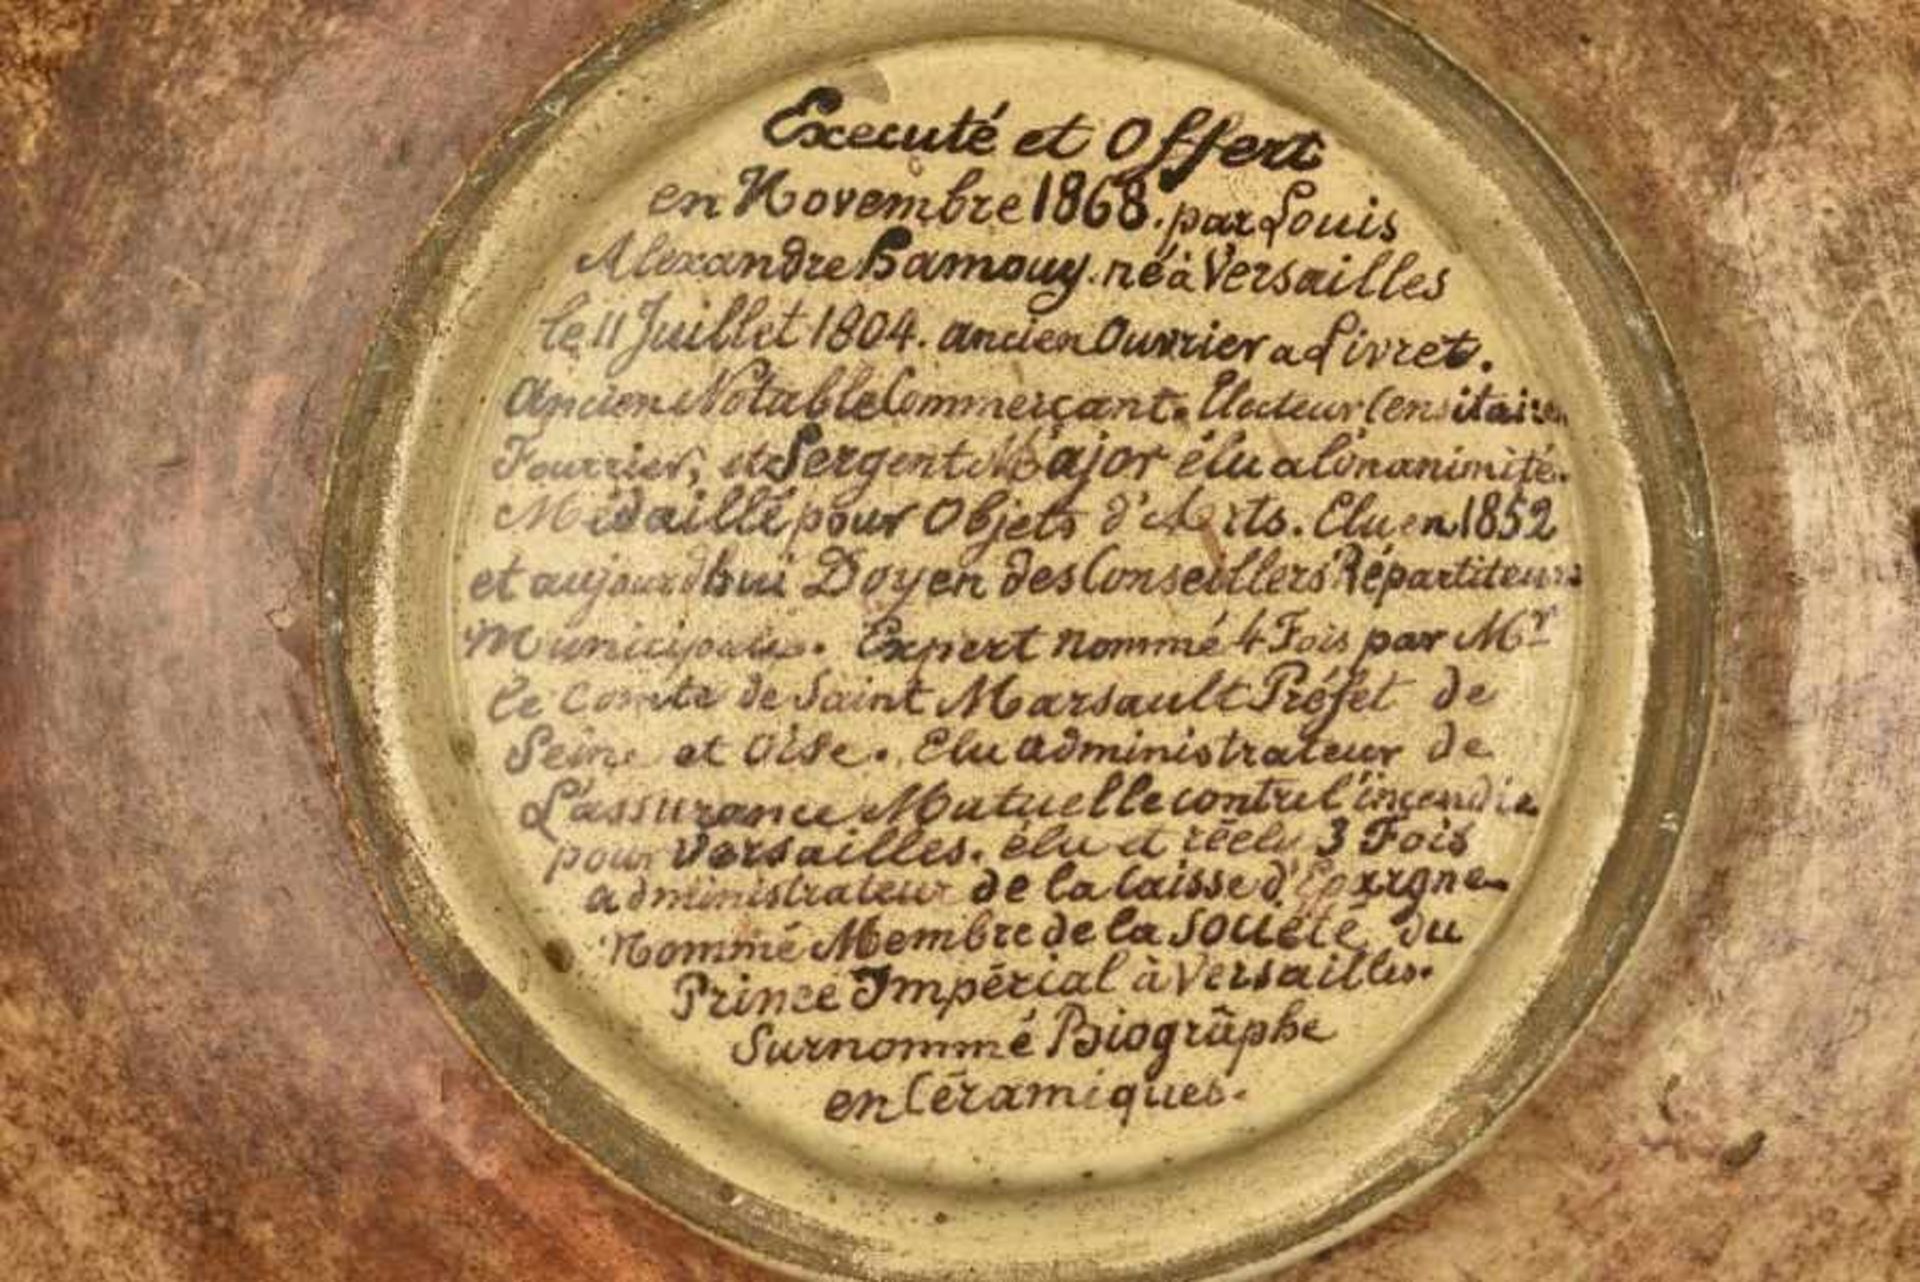 Executé et Offert
en Novembre 1868. par Louis
Alexandre Hamouy. né à Versailles
le 11 Juillet 1804. ancien Ouvrier a Livret.
Ancien Notable Commerçant. Electeur Censitaire
Fourrier, et Sergent Major élu a l'Unanimité.
Médaillé pour Objets d'Arts. Elu en 1852
et aujourdhui Doyen des Conseillers Répartiteurs
Municipaux. Expert nommé 4 Fois par Mr
le Comte de Saint Marsault Préfet de
Seine et Oise. Elu administrateur de
L'assurance Mutuelle contre l'incendie
pour Versailles. élu et réélu 3 Fois
administrateur de la Caisse d'Epargne
Nommé Membre de la Société du
Prince Impérial à Versailles.
Surnommé Biogrâphe
en Céramiques.